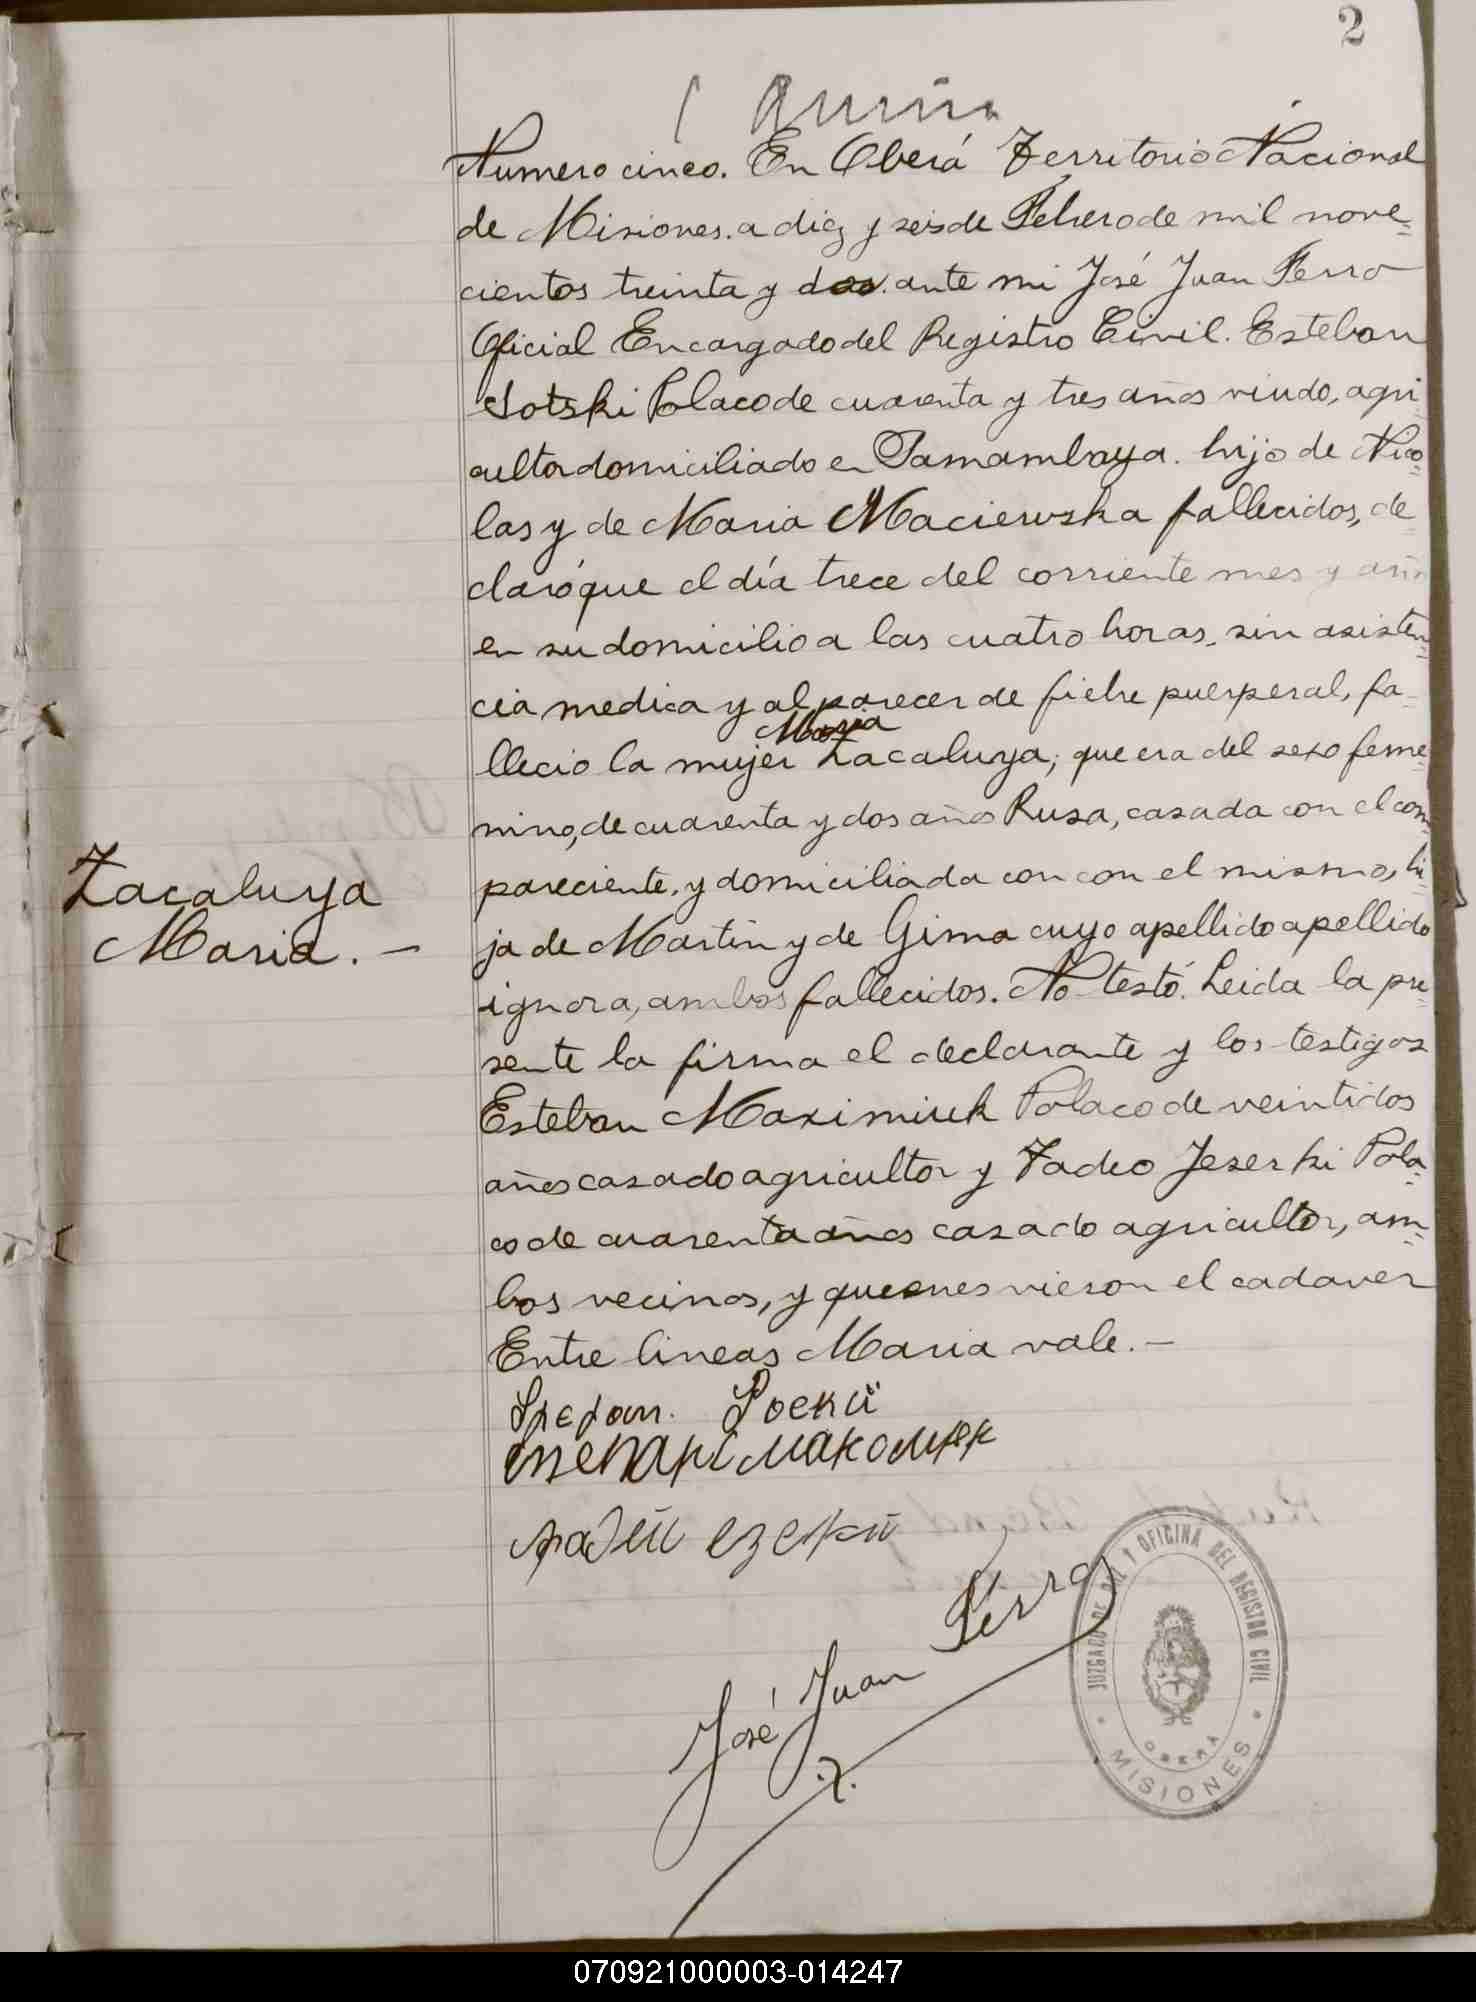 2
Numero cinco. En Oberá Territorio Nacional
de Misiones. a diez y seis de Febrero de mil nove=
cientos treinta y dos. ante mi José Juan Ferro
Oficial Encargado del Registro Civil. Esteban
Sotski Polaco de cuarenta y tres años viudo, agri
cultor domiciliado en Pamambaya. hijo de Nico=
las y de Maria Maciewska fallecidos, de=
claró que el día trece del corriente mes y año
en su domicilio a las cuatro horas, sin asisten=
cia medica y al parecer de fiebre puerperal, fa-
Maria
llecio la mujer Zacaluya; que era del sexo feme=
nino, de cuarenta y dos años Rusa, casada con el com=
pareciente, y domiciliada con con el mismo, hi-
Zacaluya
Maria. —
ja de Martin y de Gima cuyo apellido apellido
ignora, ambos fallecidos. No testó. Leida la pre=
sente la firma el declarante y los testigos
Esteban Maximiuk Polaco de veintidos
años casado agricultor y Tadeo Jeserki Pola=
co de cuarenta años casado agricultor, am=
bos vecinos, y quienes vieron el cadaver
Entre lineas Maria vale. —
José Juan Ferro
JUZGADO DE PAZ Y OFICINA DEL REGISTRO CIVIL
OBERA
MISIONES
070921000003-014247